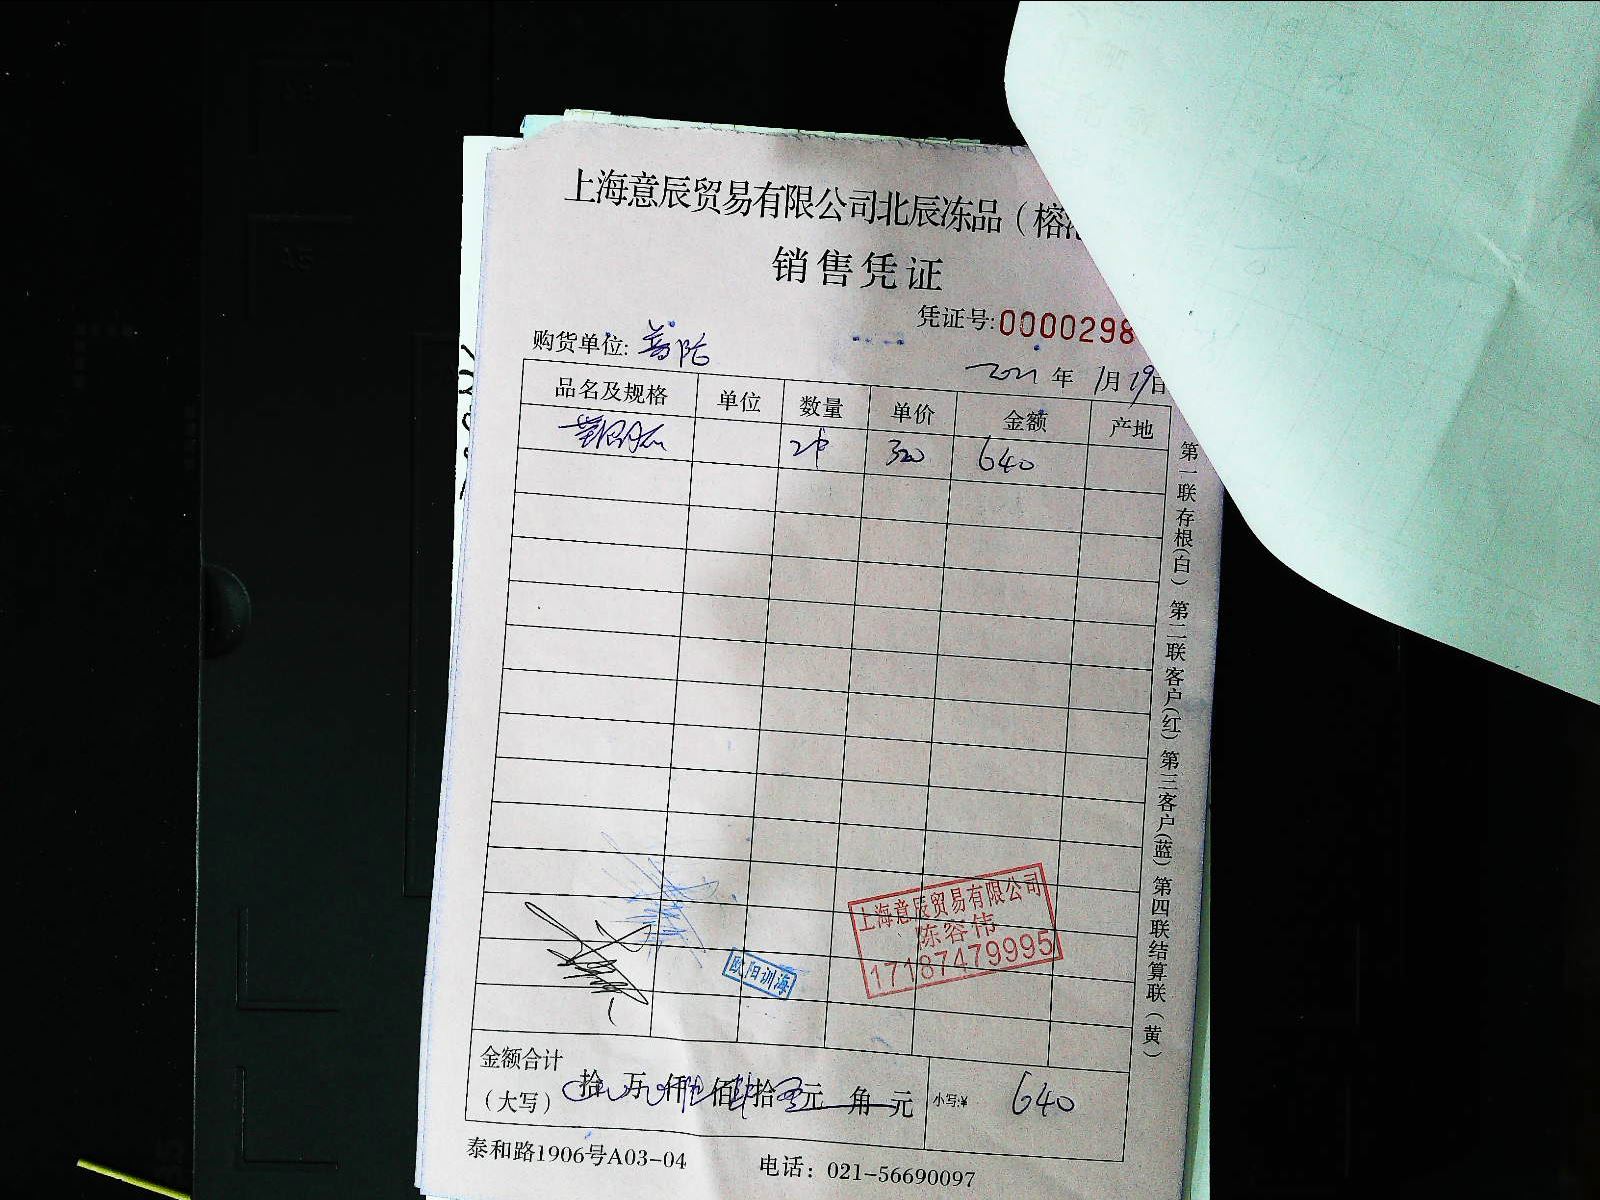 上海意辰贸易有限公司北辰冻品（榕
销售凭证
凭证号:0000298
购货单位: 普陀
2021 年 1月19日
品名及规格 单位 数量 单价 金额 产地
2件 320 640
第一联存根(白) 第二联客户(红) 第三客户(蓝) 第四联结算联(黄)
上海意辰贸易有限公司
陈容伟
17187479995
欧阳训海
金额合计
(大写) 拾 万 仟 佰 拾 元 角 元 小写:¥ 640
泰和路1906号A03-04 电话：021-56690097